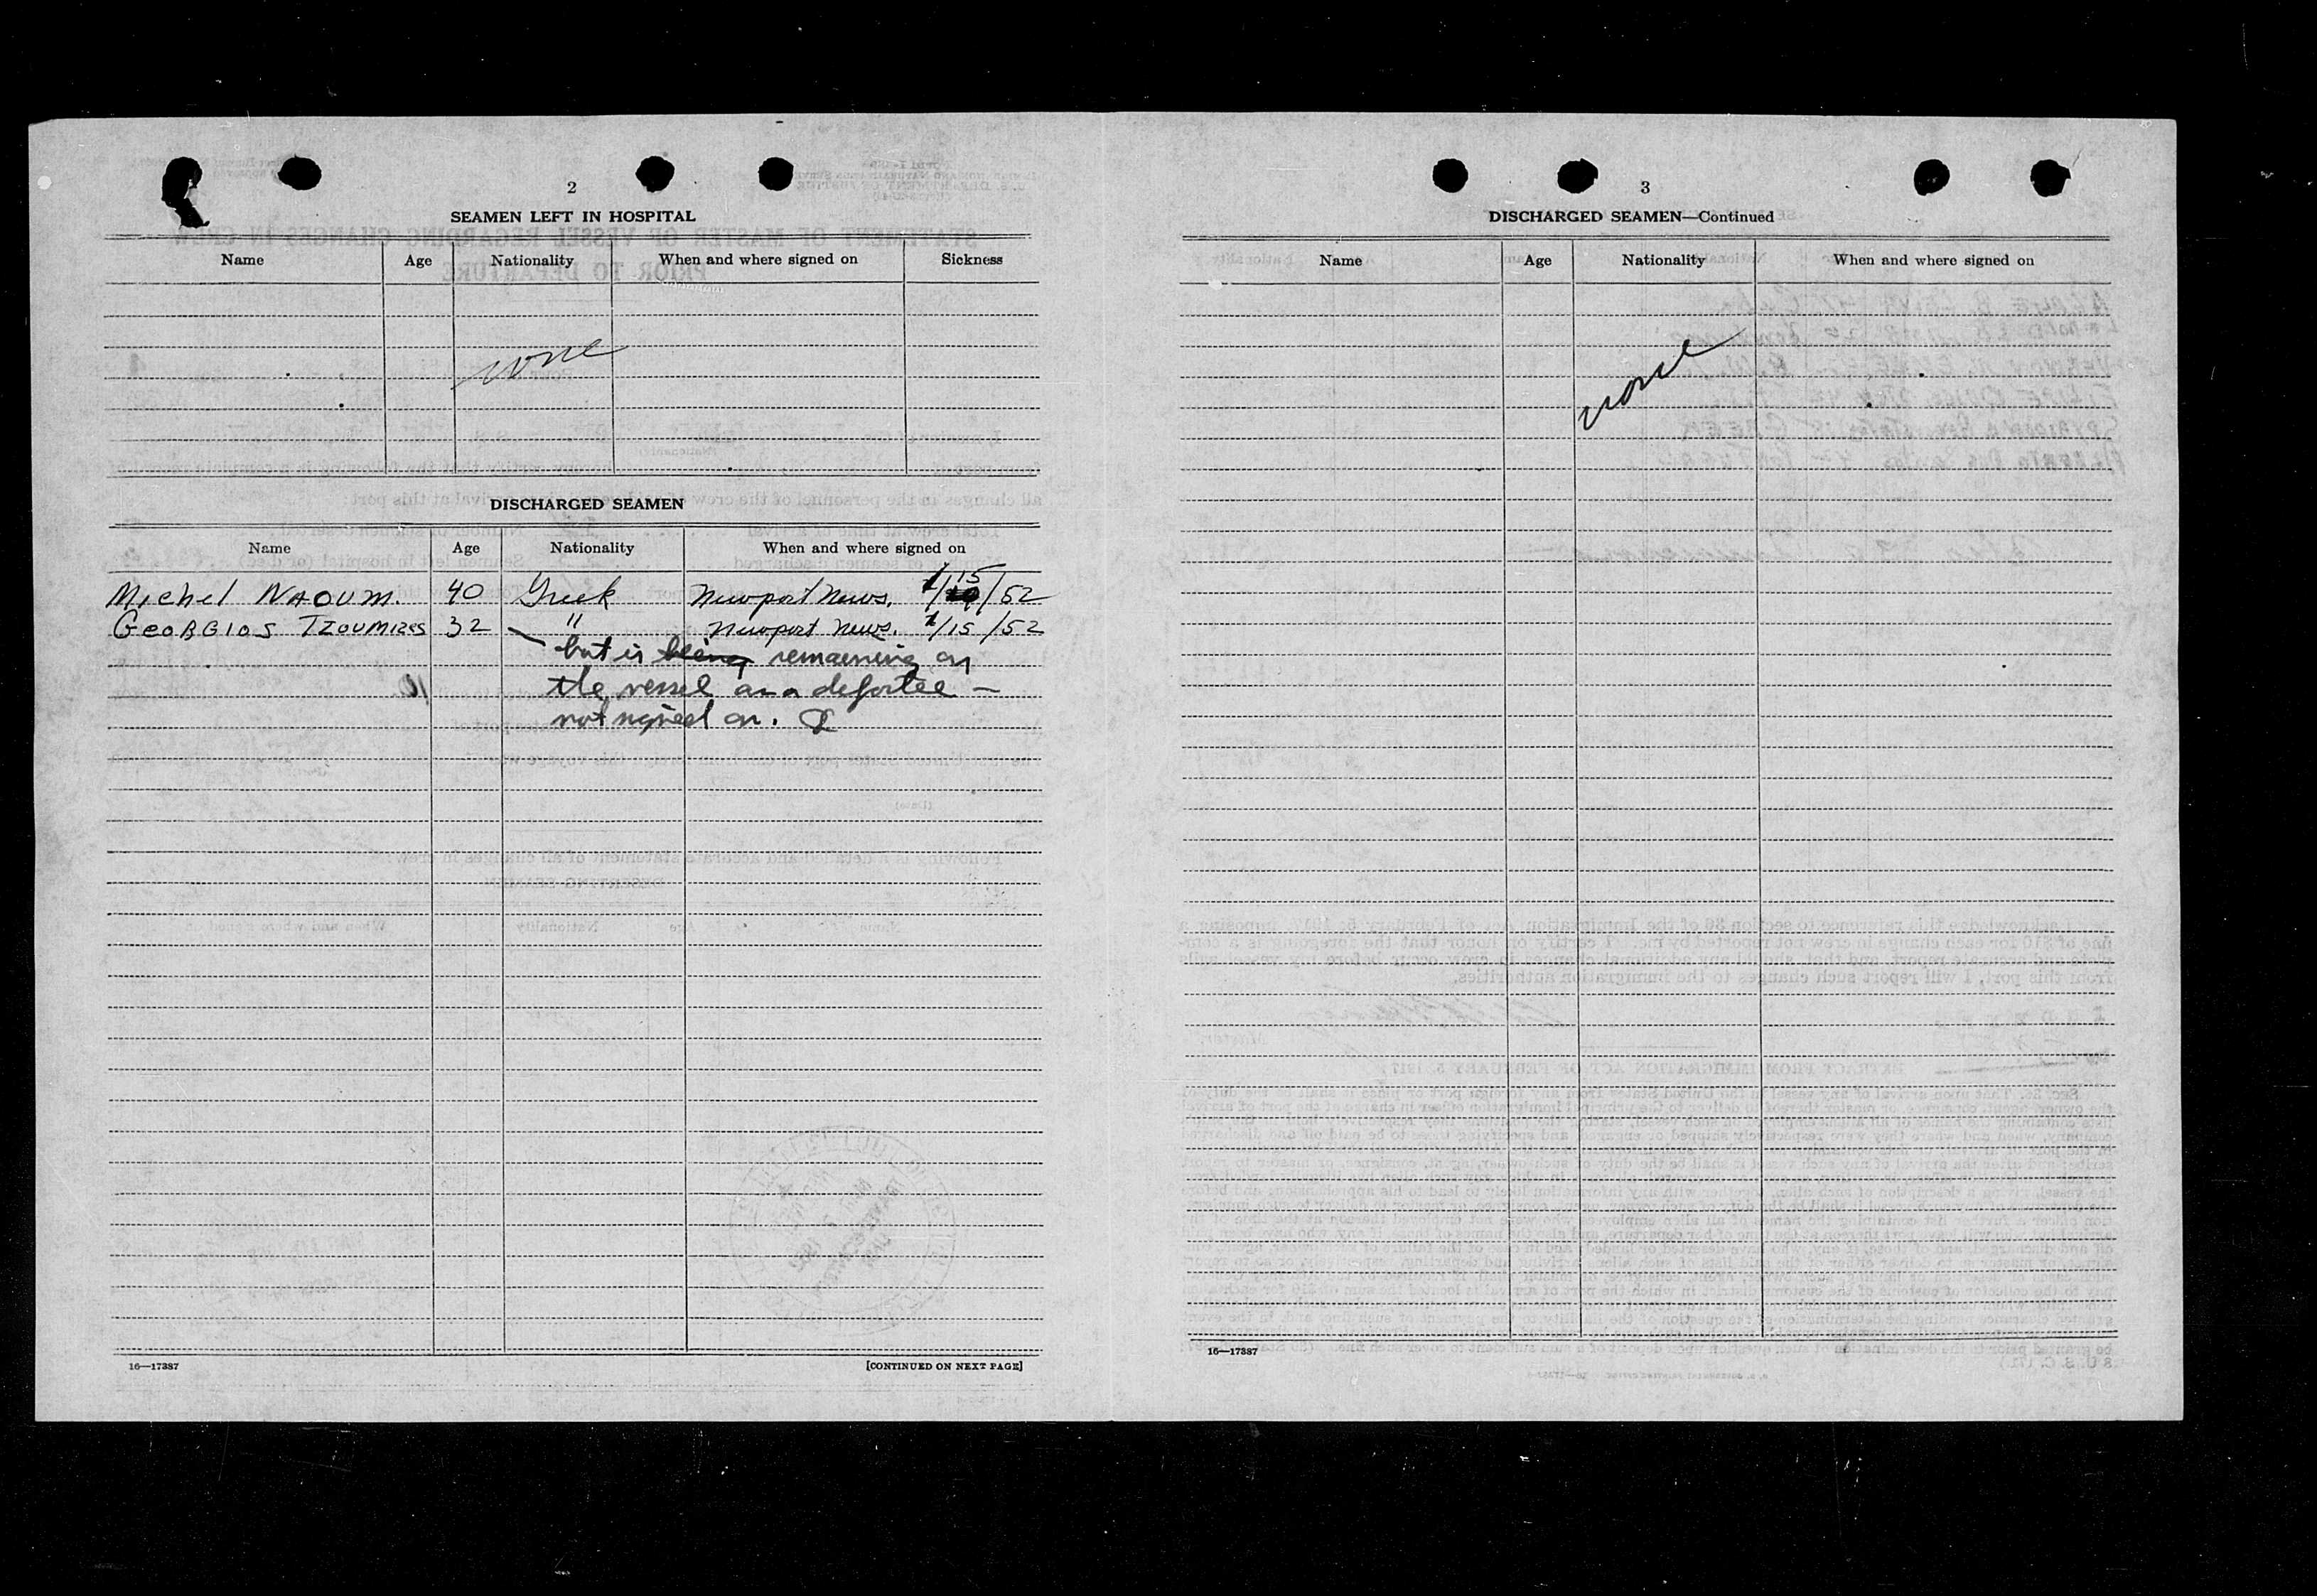 2
SEAMEN LEFT IN HOSPITAL
Name Age Nationality When and where signed on Sickness
none
DISCHARGED SEAMEN
Name Age Nationality When and where signed on
Michel NAOUM. 40 Greek Newport News. 1/15/52
GEORGIOS TZOUMIZES 32 " Newport News. 1/15/52
but is being remaining on
the vessel as a deportee —
not signed on.
16—17387 [CONTINUED ON NEXT PAGE]
3
DISCHARGED SEAMEN—Continued
Name Age Nationality When and where signed on
none
16—17387